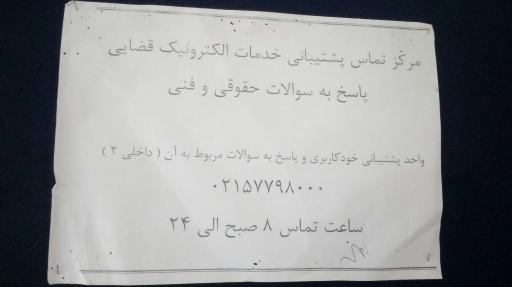 مرکز تماس پشتیبانی خدمات الکترونیک قضایی
پاسخ به سوالات حقوقی و فنی
واحد پشتیبانی خودکاربری و پاسخ به سوالات مربوط به آن ( داخلی ۲ )
۰۲۱۵۷۷۹۸۰۰۰
ساعت تماس ۸ صبح الی ۲۴